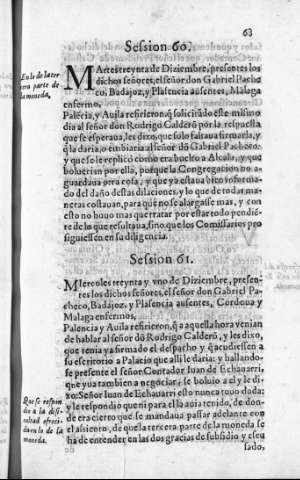 63
Session 60.
En lo de la ter
cera parte de
la moneda.
MArtes treynta de Diziembre, presentes los
dichos señores, el señor don Gabriel Pache
co, Badajoz, y Plasencia ausentes, Malaga
enfermo.
Palēcia, y Auila refirieron, q̃ solicitãdo este mismo
dia al señor don Rodrigo Calderō por la respuesta
que se espera, les dixo, que solo faltaua firmarla, y
q̃ la daria, o embiaria al señor dō Gabriel Pacheco:
y que se le replicò como era buelto a Alcala, y que
boluerian por ella, porque la Congregacion no a-
guardaua otra cosa, y que ya estaua bien informa-
do del daño destas dilaciones, y lo que de todas ma-
neras costauan, para que no se alargasse mas, y con
esto no huuo mas que tratar por estar todo pendiē-
te de lo que resultaua, sino que los Comissarios pro
siguiessen en su diligencia.
Session 61.
MIercoles treynta y vno de Diziembre, presen-
tes los dichos señores, el señor don Gabriel Pa-
checo, Badajoz, y Plasencia ausentes, Cordoua y
Malaga enfermos,
Palencia y Auila refirieron, q̃ a aquella hora venian
de hablar al señor dō Rodrigo Calderō, y les dixo,
que tenia ya firmado el despacho y q̃ acudiessen a
su escritorio a Palacio que alli le daria: y hallando-
se presente el señor Contador Iuan de Echauarri,
que yua tambien a negociar, se boluio a el y le di-
xo: Señor Iuan de Echauarri esto nunca tuuo duda:
y le respondio que ni para el la auia tenido, de don-
de era cierto que se mandaua passar adelante con
el assiento, de que la tercera parte de la moneda se
ha de entender en las dos gracias de subsidio y escu
sado,
Que se respon
dio a la difi-
cultad ofreci-
da en lo de la
moneda.